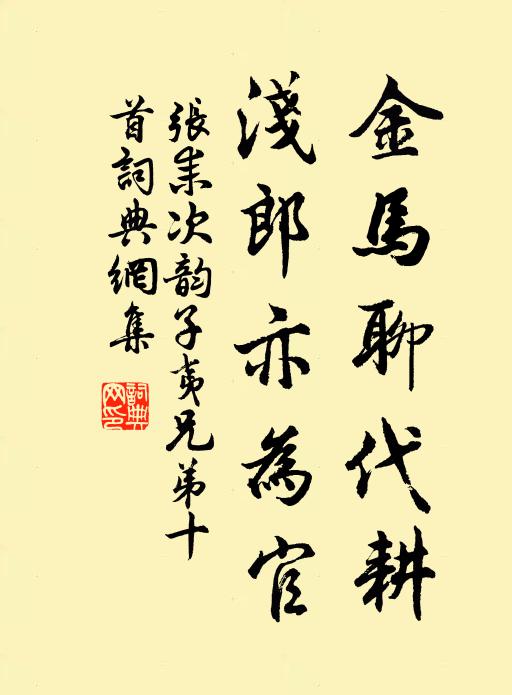 金馬聊代耕
淺郎亦為官
張耒次韵子夷兄弟十
首詞典網集
詞典
网印